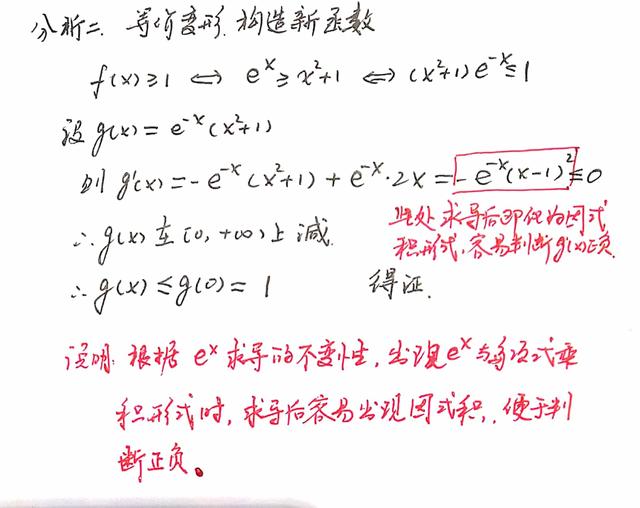 分析二. 等价变形. 构造新函数
f(x)≥1 ⇔ e^x≥x²+1 ⇔ (x²+1)e^-x≤1
设g(x)=e^-x(x²+1)
则g'(x)=-e^-x(x²+1)+e^-x·2x=-e^-x(x-1)²≤0
此处求导后即化为因式
积形式,容易判断g'(x)正负.
∴g(x)在[0,+∞)上减.
∴g(x)≤g(0)=1 得证.
说明: 根据e^x求导的不变性,出现e^x与多项式乘
积形式时,求导后容易出现因式积,便于判
断正负。